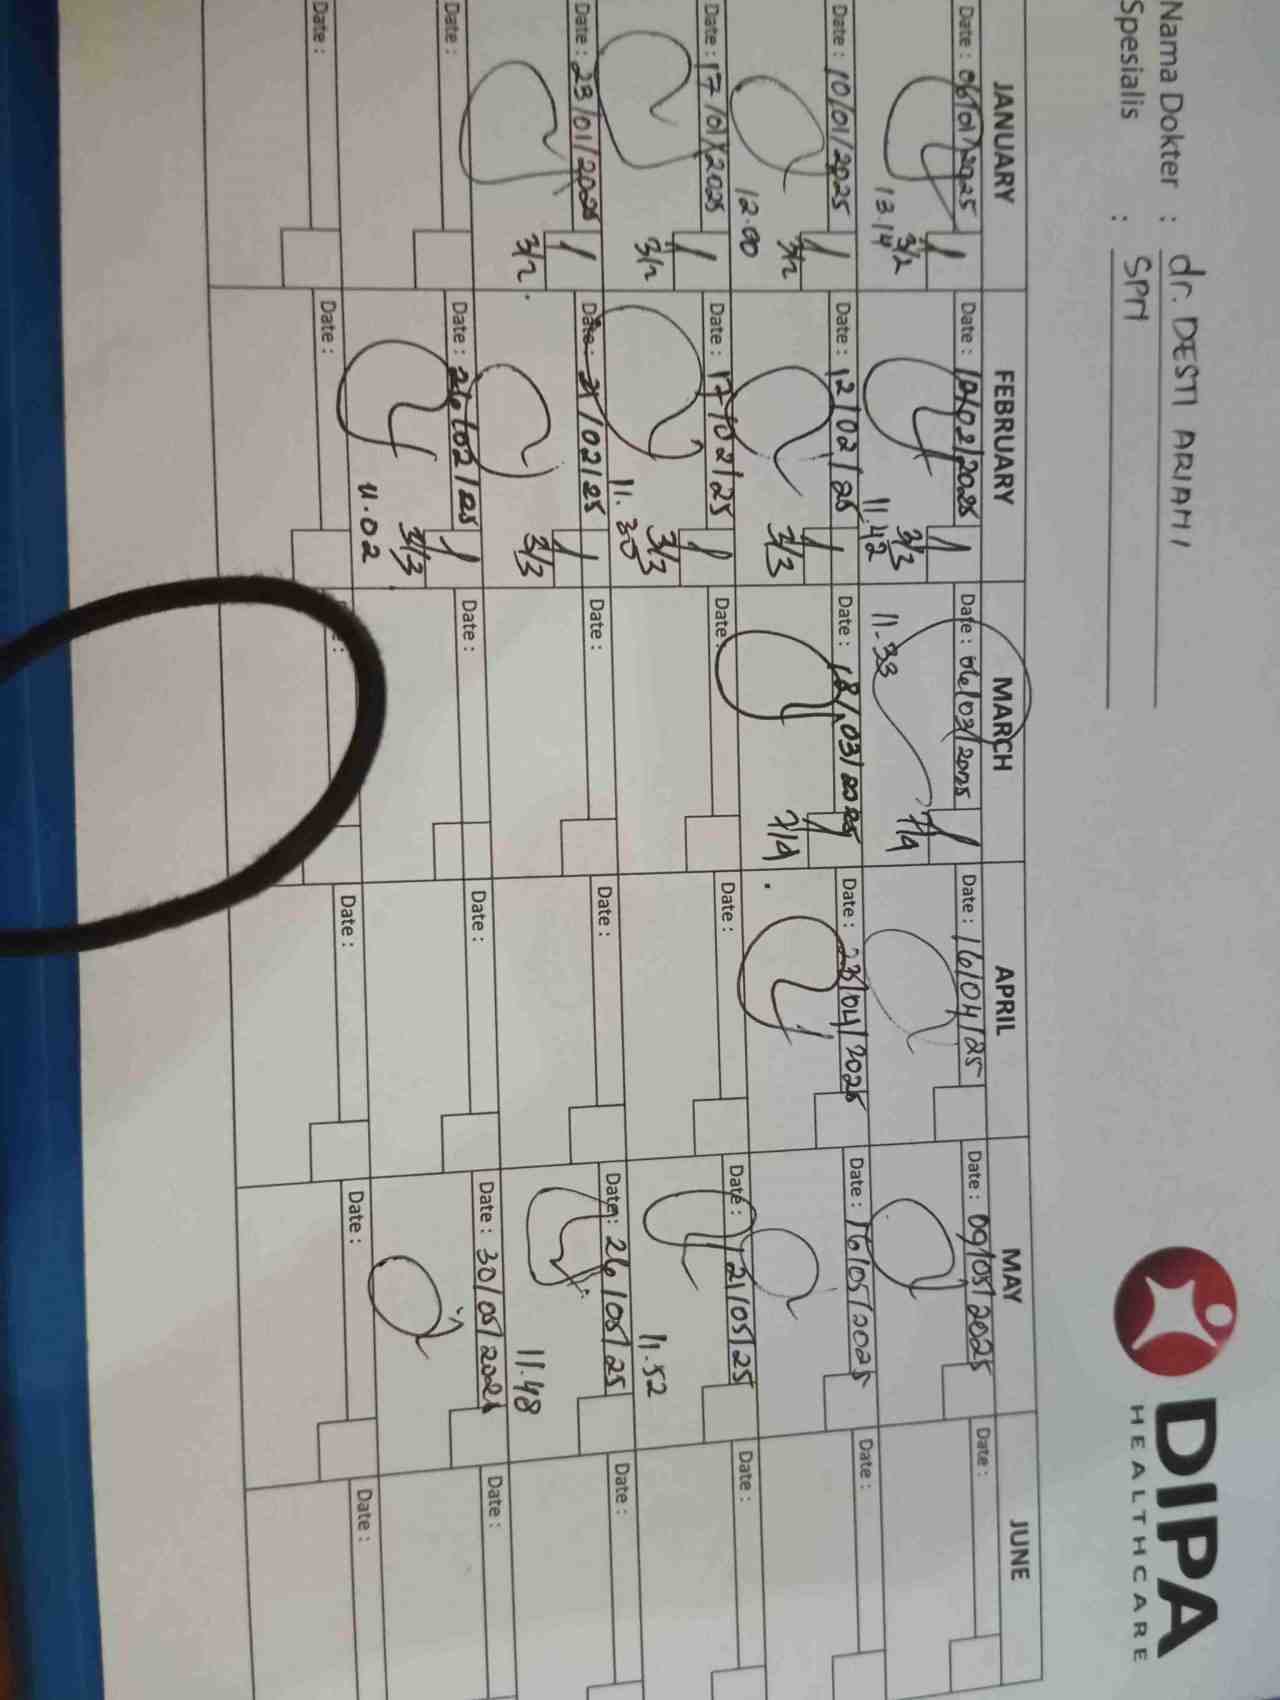 DIPA
HEALTHCARE
Nama Dokter : dr. DESTI ARIANI
Spesialis : SPM
JANUARY FEBRUARY MARCH APRIL MAY JUNE
Date : 06/01/2025 Date : 10/02/2025 Date : 06/03/2025 Date : 16/04/25 Date : 09/05/2025 Date :
3/2 3/3 7/4
13.14 11.42 11.33
Date : 10/01/2025 Date : 12/02/25 Date : 18/03/2025 Date : 23/04/2025 Date : 16/05/2025 Date :
3/2 3/3 7/4
12.00
Date : 17/01/2025 Date : 17/02/25 Date : Date : Date : 21/05/25 Date :
3/2 3/3
11.30 11.52
Date : 23/01/2025 Date : 21/02/25 Date : Date : Date : 26/05/25 Date :
3/2 3/3
11.48
Date : Date : 26/02/25 Date : Date : Date : 30/05/2025 Date :
3/3
11.02
Date : Date : Date : Date : Date :